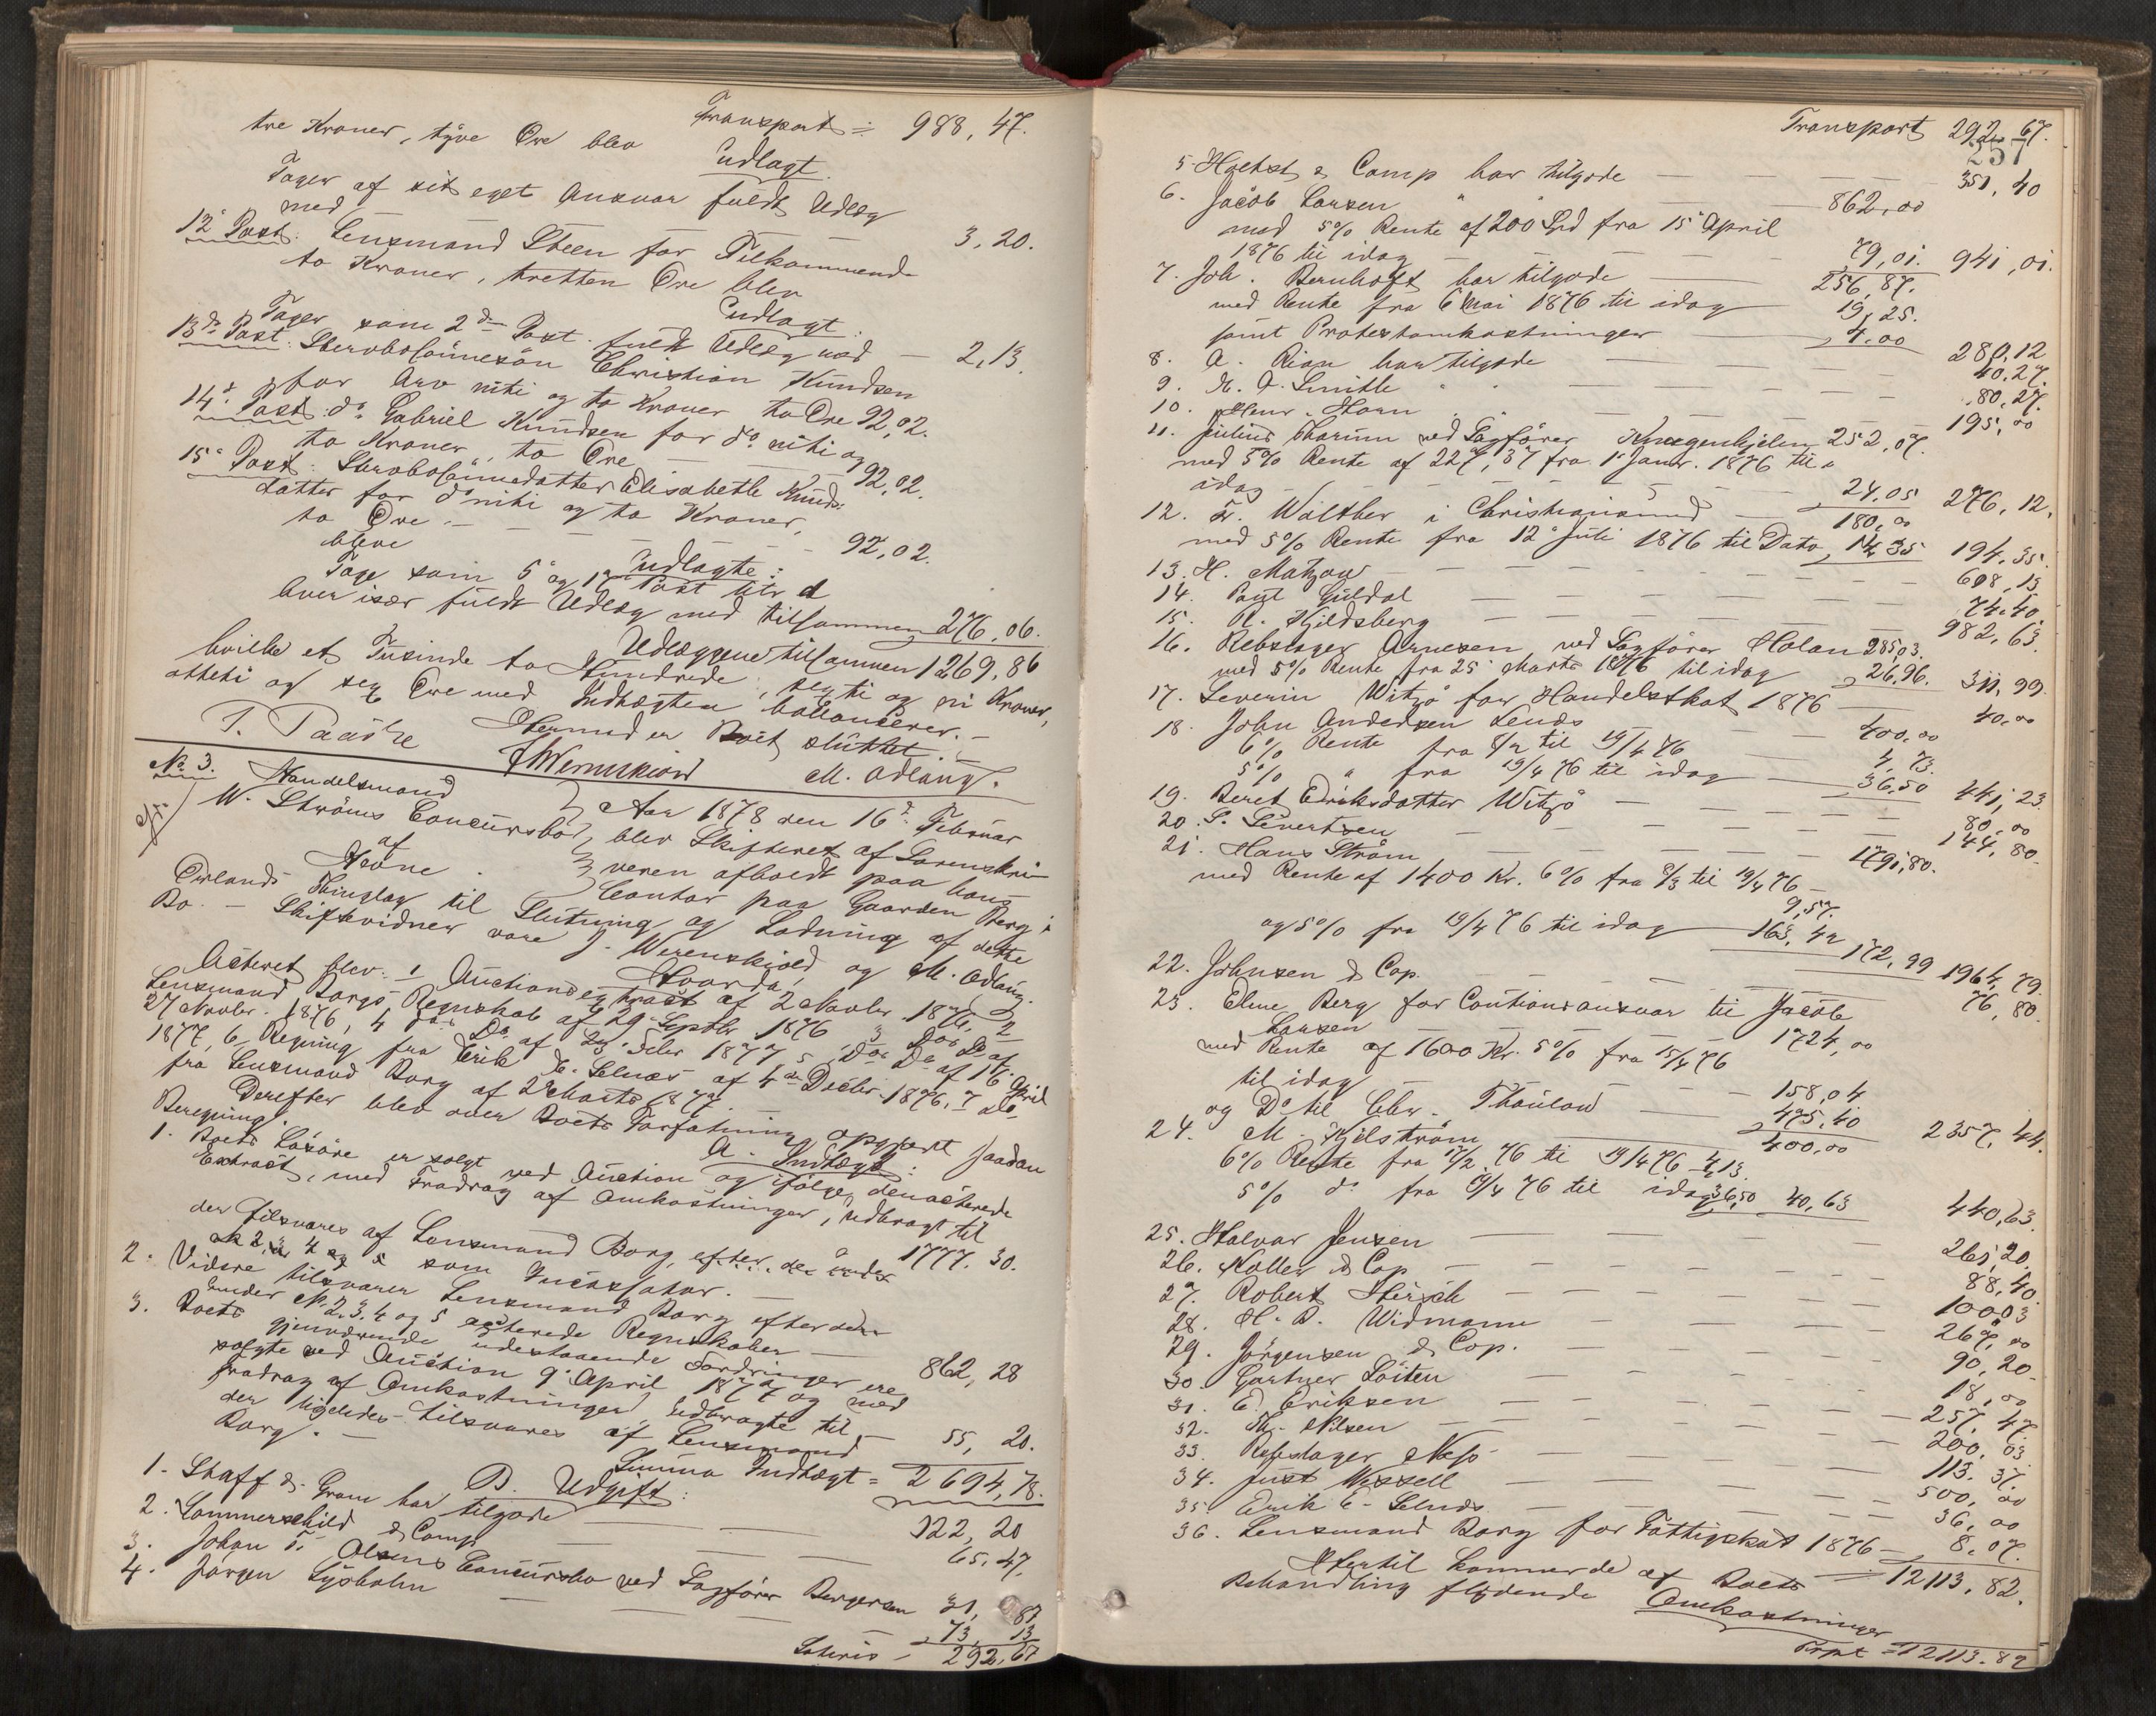 Transport = 988,47.
tre Kroner, tyve Øre blev
Udlagt.
Tager af sit eget Ansvar fuldt Udlæg
med — — — — 3,20.
12te Post. Lensmand Steen for Tilkommende
to Kroner, tretten Øre blev
Udlagt:
Tager som 2den Post fuldt Udlæg med 2,13.
13de Post: Stervbosønnesøn Christian Knudsen
for Arv niti og to Kroner to Øre 92,02.
14de Post: do Gabriel Knudsen for do niti og
to Kroner, to Øre — — 92,02.
15de Post: Stervbosønnedatter Elisabeth Knuds-
datter for do niti og to Kroner,
to Øre — — — — 92,02.
bleve
Udlagte:
Tage som 5te og 1ste Post litr d
hver især fuldt Udlæg med tilsammen 276,06.
Udlæggene tilsammen 1269,86
hvilke et Tusinde to Hundrede, sexti og ni Kroner,
otteti og sex Øre med Indtægten ballancerer. —
Hermed er Boet sluttet.
P. Paaske JWerenskiold M. Odlaug.
No 3.
Handelsmand
W. Strøms Concursbo
af
Aar 1878 den 16de Februar
blev Skifteret af Sorenskri-
veren afholdt paa hans
Contor paa Gaarden Berg i
Ørlands Thinglag til Slutning og Lodning af dette
Bo. — Skiftevidner vare J. Werenskiold og M. Odlaug.
Hvorda,
Acteret blev: 1 Auctionsextract af 2 Novbr. 1876, 2
Lensmand Borgs Regnskab af 29 Septbr 1876 3 Dos Do af
27 Novbr. 1876, 4 Dos Do af 23 Febr 1877 5 Dos Do af 16 April
1877, 6 Regning fra Erik E. Selnæs af 4de Decbr. 1876, 7 do
fra Lensmand Borg af 2 Marts 1877.
Derefter blev over Boets Forfatning opgjort saadan
Beregning.
A. Indtægt:
1. Boets Løsøre er solgt ved Auction og ifølge den acterede
Extract, med Fradrag af Omkostninger, udbragt til
1777.30.
der tilsvares af Lensmand Borg, efter de under
No 2, 3, 4 og 5 som Incassator. —
2. Videre tilsvarer Lensmand Borg efter de
under No 2, 3, 4 og 5 acterede Regnskaber — 862,28
3. Boets gjenværende udestaaende Fordringer ere
solgte ved Auction 9 April 1877 og med
Fradrag af Omkostninger udbragte til — 55,20.
der ligeledes tilsvares af Lensmand
Borg. —
Summa Indtægt = 2694,78.
B. Udgift:
1. Staff & Gram har tilgode — — 122,20
2. Lommerschild & Comp — — 65,47.
3. Johan F. Olsens Concursbo ved Sagfører Bergersen 31,87
4. Jørgen Lysholm — — — 73,13
Lateris — 292,67
Transport 292,67.
257
5. Høehst & Comp har tilgode — — — 351,40
6. Jacob Larsen " " — 862,00
med 5% Rente af 200 Spd fra 15de April
1876 til idag — — — 79,01. 941,01.
7. Joh. Bernhoft har tilgode — 256,87.
med Rente fra 6 Mai 1876 til idag 19,25.
samt Protestomkostninger — 4,00 280,12
8. A. Rian har tilgode — — — 40,27.
9. N. A. Smith " " — — — 80,27.
10. Henr. Horn " " — — — 195,00
11. Julius Tharum ved Sagfører Krogenhjelm 252,07.
med 5% Rente af 227,37 fra 1 Janr. 1876 til
idag — — — 24,05 276,12.
12. Fr. Walther i Christiansund — 180,00
med 5% Rente fra 12te Juli 1876 til Dato 14,35 194,35.
13. H. Matzow — — — 608,13
14. Paul Guldal — — — 74,40
15. R. Kjeldsberg — — — 982,63.
16. Rebslager Arnesen ved Sagfører Holan 285,03.
med 5% Rente fra 25 Marts 1876 til idag 26,96. 311,99
17. Severin Witzø for Handelsskat 1876 — 40,00
18. John Andersen Lenæs — 400,00
6% Rente fra 8/2 til 19/4 76 4,73.
5% " fra 19/4 76 til idag — 36,50 441,23.
19. Beret Eriksdatter Witzø — — 80,00
20. S. Sivertsen — — — 144,80
21. Hans Strøm — — 1791,80.
med Rente af 1400 Kr. 6% fra 8/3 til 19/4 76 — 9,57.
og 5% fra 19/4 76 til idag — 163,42 172,99 1964,79.
22. Johnsen & Cop. — — — 76,80.
23. Elme Berg for Cautionsansvar til Jacob
Larsen — 1724,00
med Rente af 1600 Kr. 5% fra 15/4 76
til idag — 158,04
og Do til Chr. Thaulow — 475,40 2357,44.
24. M. Kjelstrøm — 400,00
6% Rente fra 17/2 76 til 19/4 76 4,13.
5% do fra 19/4 76 til idag 36,50 40,63 440,63.
25. Halvar Jensen — — — 261,20.
26. Møller & Cop — — — 88,40.
27. Robert Hirsch — — — 100,03
28. H. B. Widmann — — — 267,00
29. Jørgensen & Cop. — — — 90,20.
30. Gartner Løiten — — — 18,00
31. E. Eriksen — — — 257,47.
32. Th. Nilsen — — — 200,03
33. Rebslager Næss — — — 113,37.
34. Just Wessell — — — 500,00
35. Erik E. Selnæs — — — 36,00
36. Lensmand Borg for Fattigskat 1876 — 8,07.
= 12113,82.
Hertil kommer de af Boets
Behandling flydende Omkostninger
Trpt = 12113.82